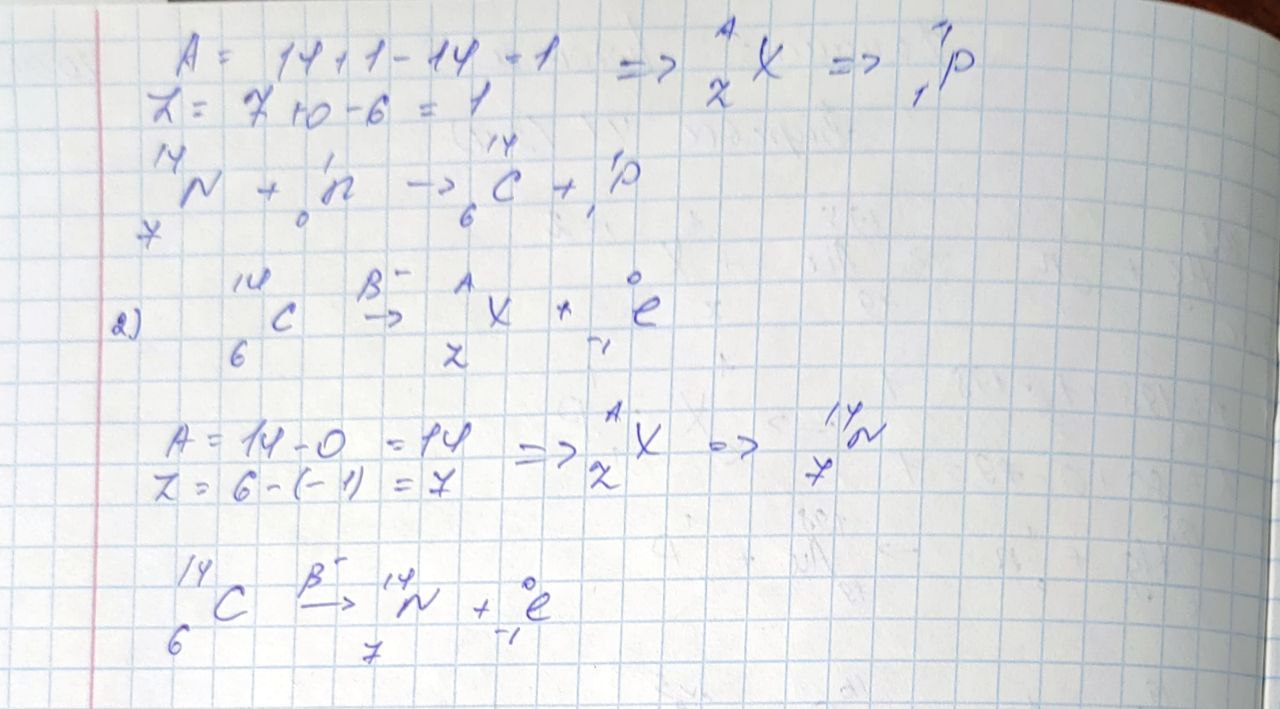 A = 14 + 1 - 14 = 1 => ᴬ_Z X => ¹₁p
Z = 7 + 0 - 6 = 1
¹⁴₇N + ¹₀n -> ¹⁴₆C + ¹₁p
2) ¹⁴₆C β⁻-> ᴬ_Z X + ⁰₋₁e
A = 14 - 0 = 14 => ᴬ_Z X => ¹⁴₇N
Z = 6 - (-1) = 7
¹⁴₆C β⁻-> ¹⁴₇N + ⁰₋₁e